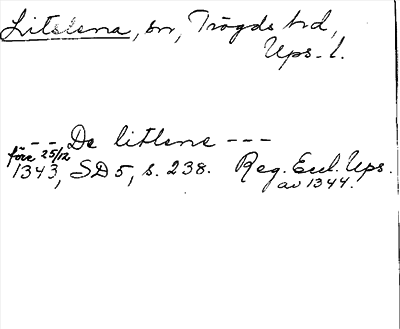 Litslena, sn, Trögds hd,
Ups. l.
-- De litlene ---
före 25/12
1343, SD5, s. 238. Reg. Eccl. Ups.
av 1344.